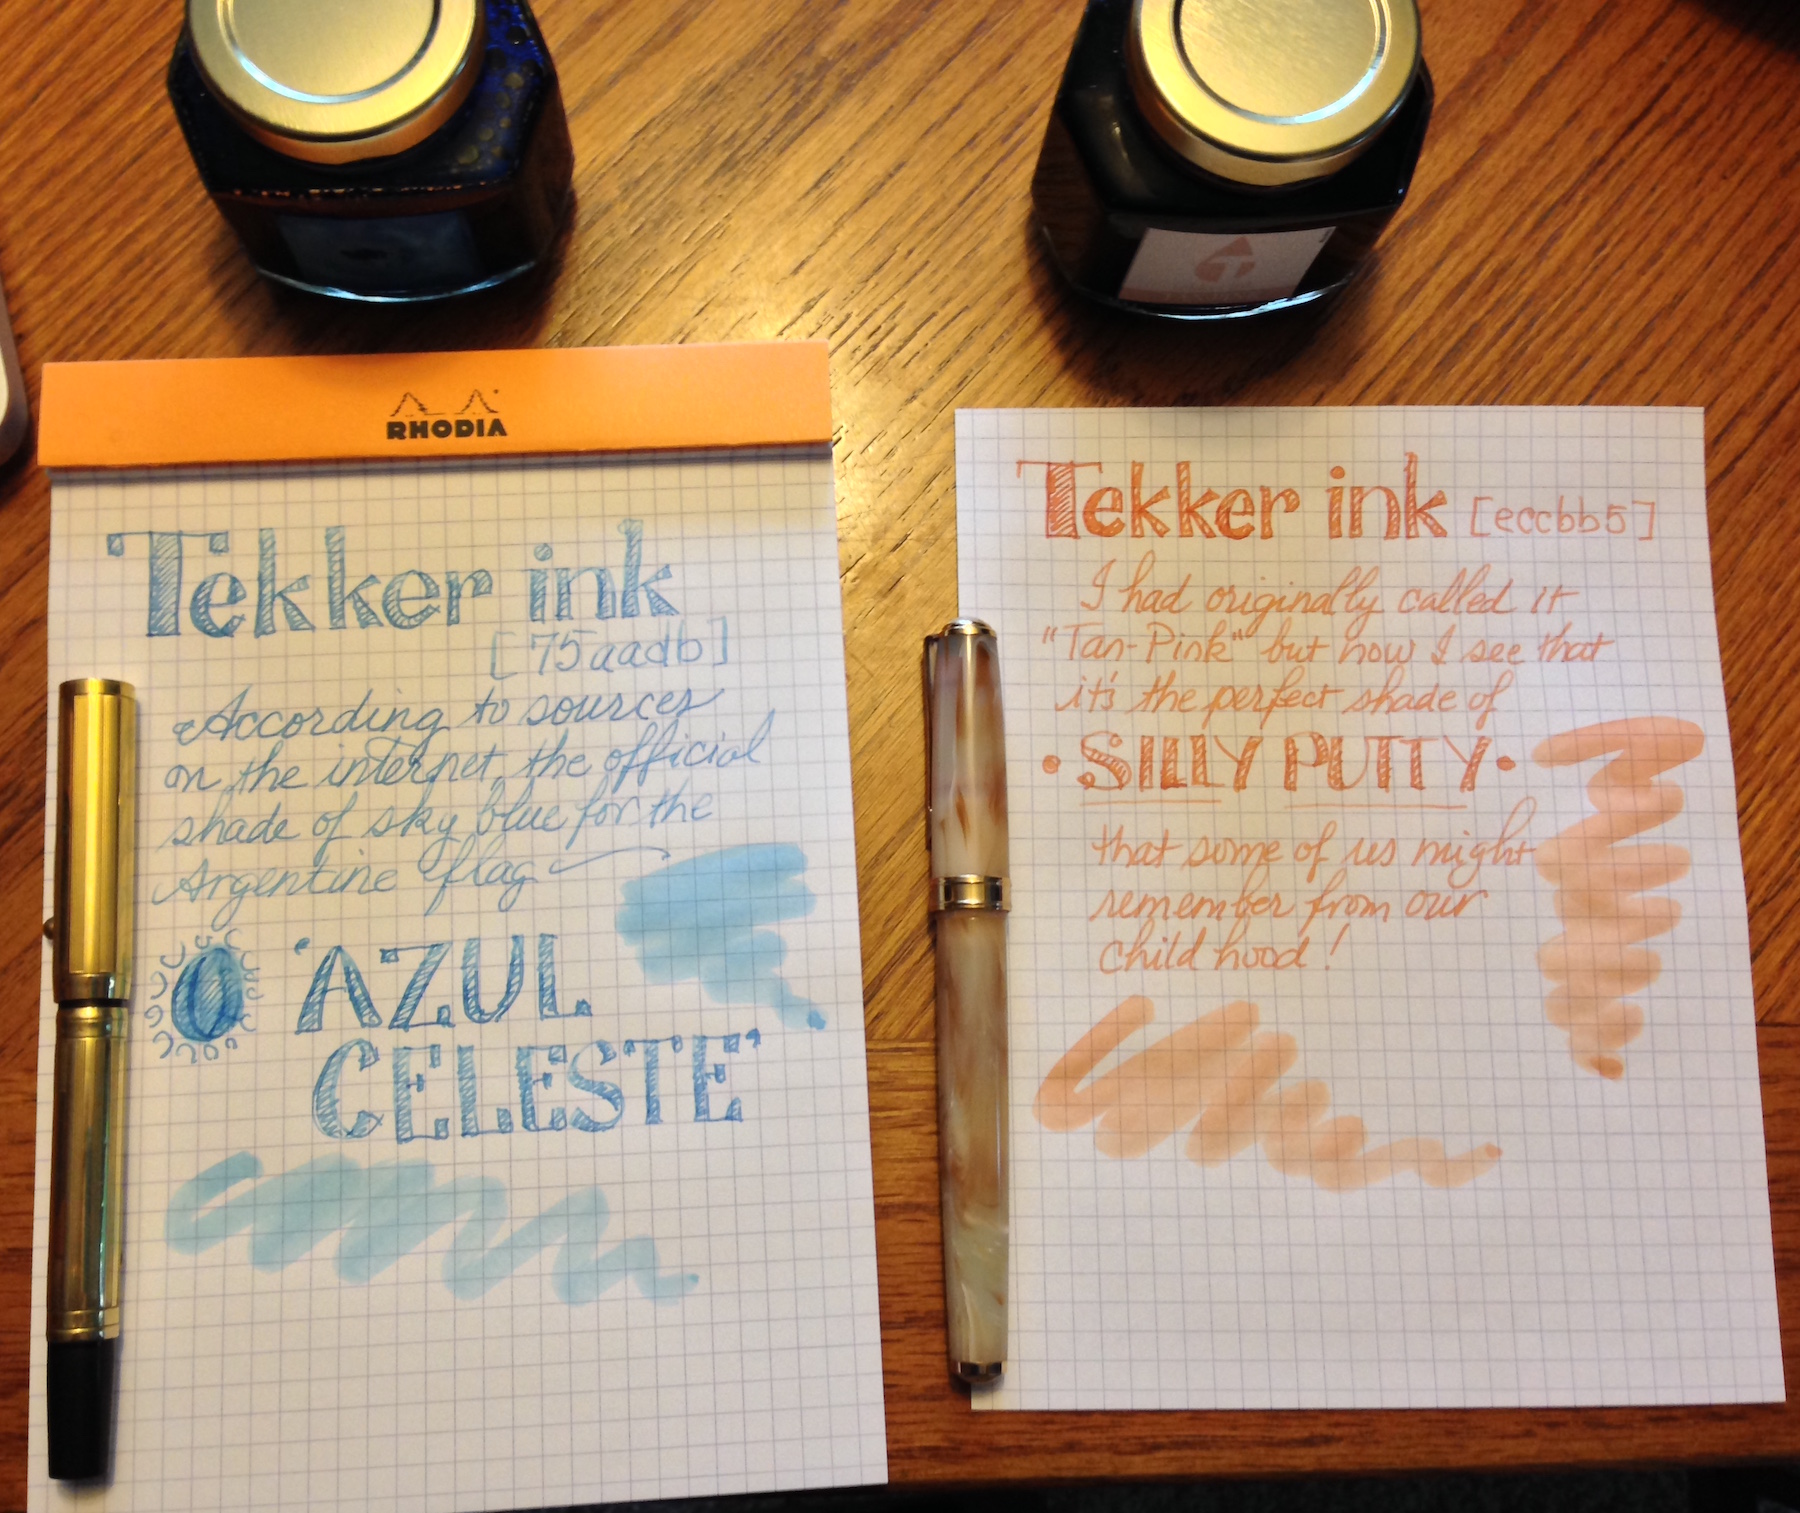 RHODIA
Tekker ink
[75aadb]
According to sources
on the internet, the official
shade of sky blue for the
Argentine flag
'AZUL
CELESTE'
Tekker ink [eccbb5]
I had originally called it
"Tan-Pink" but now I see that
it's the perfect shade of
• SILLY PUTTY •
that some of us might
remember from our
child hood!